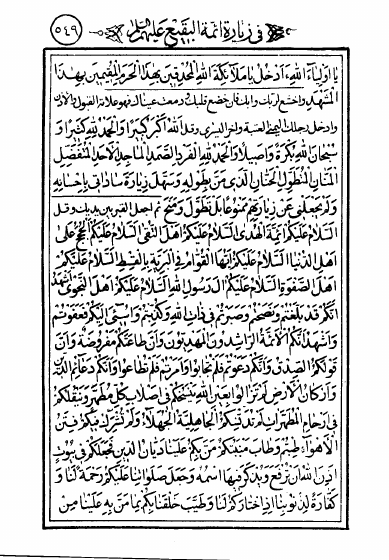 في زيارة ائمة البقيع عليهم السلام
٥٤٩
يا اولياء الله أدخل يا ملائكة الله المحدقين بهذا الحرم المقيمين بهذا
المشهد واخشع لربك وابك فان خشع قلبك ودمعت عيناك فهو علامة القبول والاذن
وادخل رجلك اليمنى العتبة واخر اليسرى وقل الله اكبر كبيرا والحمد لله كثيرا و
سبحان الله بكرة واصيلا والحمد لله الفرد الصمد الماجد الاحد المتفضل
المنان المتطول الحنان الذي من بطوله وسهل زيارة ساداتي باحسانه
ولم يجعلني عن زيارتهم ممنوعا بل تطول ومنح ثم اجعل القبر بين يديك وقل
السلام عليكم ائمة الهدى السلام عليكم اهل التقوى السلام عليكم الحجج على
اهل الدنيا السلام عليكم ايها القوام في البرية بالقسط السلام عليكم
اهل الصفوة السلام عليكم ال رسول الله السلام عليكم اهل النجوى اشهد
انكم قد بلغتم ونصحتم وصبرتم في ذات الله وكذبتم واسئ اليكم فعفوتم
واشهد انكم الائمة الراشدون المهديون وان طاعتكم مفروضة وان
قولكم الصدق وانكم دعوتم فلم تجابوا وامرتم فلم تطاعوا وانكم دعائم الدين
واركان الارض لم تزالوا بعين الله ينسخكم في اصلاب كل مطهر وينقلكم
في ارحام المطهرات لم تدنسكم الجاهلية الجهلاء ولم تشرك فيكم فتن
الاهواء طبتم وطاب منبتكم من بكم علينا ديان الدين فجعلكم في بيوت
اذن الله ان ترفع ويذكر فيها اسمه وجعل صلواتنا عليكم رحمة لنا و
كفارة لذنوبنا اذ اختاركم لنا وطيب خلقنا بكم بما من به علينا من